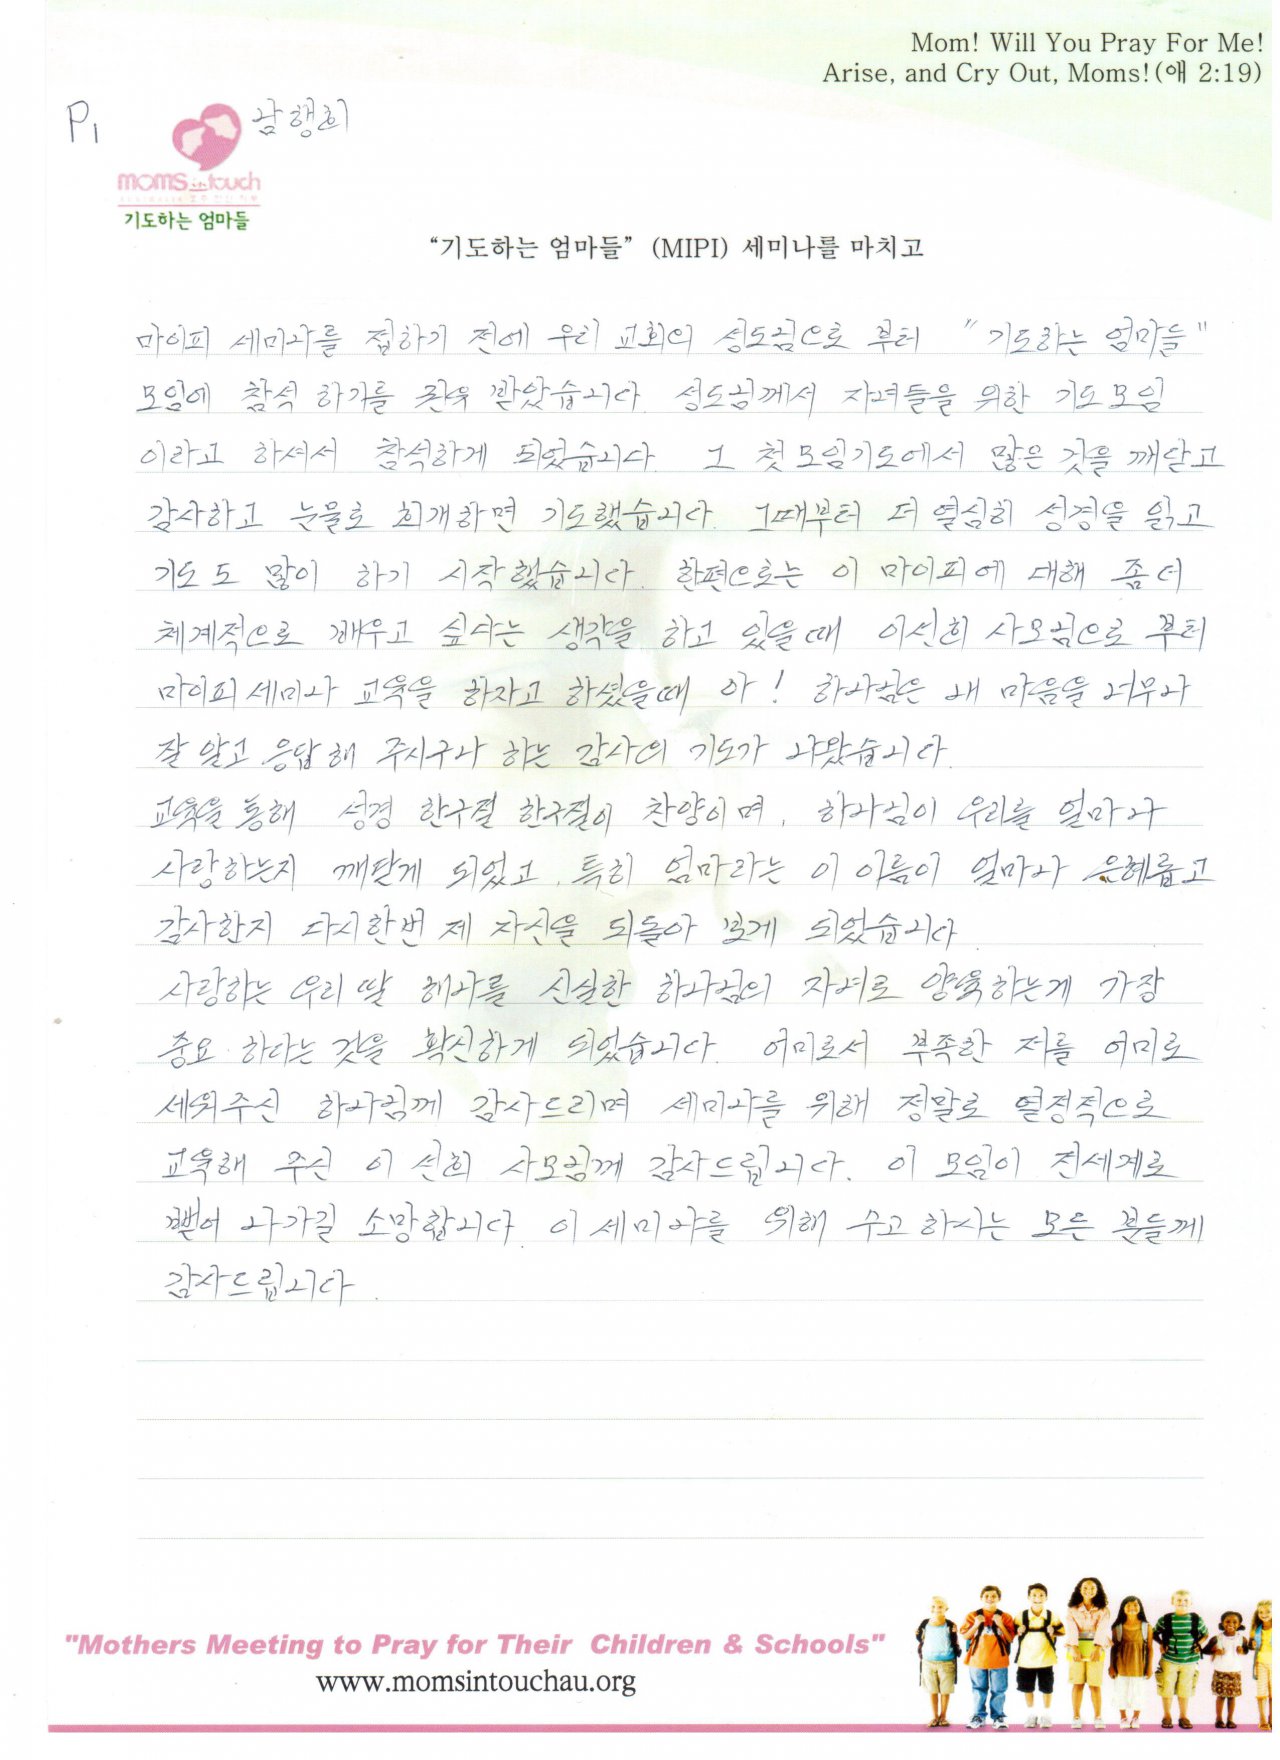 Mom! Will You Pray For Me!
Arise, and Cry Out, Moms!(애 2:19)
P1
남행희
moms in touch
기도하는 엄마들
“기도하는 엄마들” (MIPI) 세미나를 마치고
마이피 세미나를 접하기 전에 우리 교회의 성도님으로 부터 "기도하는 엄마들"
모임에 참석 하기를 권유 받았습니다. 성도님께서 자녀들을 위한 기도모임
이라고 하셔서 참석하게 되었습니다. 그 첫 모임기도에서 많은 것을 깨닫고
감사하고 눈물로 회개하면 기도했습니다. 그때부터 더 열심히 성경을 읽고
기도도 많이 하기 시작했습니다. 한편으로는 이 마이피에 대해 좀더
체계적으로 배우고 싶다는 생각을 하고 있을때 이선희 사모님으로 부터
마이피세미나 교육을 하자고 하셨을때 아! 하나님은 내 마음을 너무나
잘 알고 응답해 주시구나 하는 감사의 기도가 나왔습니다.
교육을 통해 성경 한구절 한구절이 찬양이며, 하나님이 우리를 얼마나
사랑하는지 깨닫게 되었고, 특히 엄마라는 이 이름이 얼마나 은혜롭고
감사한지 다시한번 제 자신을 되돌아 보게 되었습니다
사랑하는 우리 딸 해나를 신실한 하나님의 자녀로 양육하는게 가장
중요 하다는 것을 확신하게 되었습니다. 어미로서 부족한 저를 어미로
세워주신 하나님께 감사드리며 세미나를 위해 정말로 열정적으로
교육해 주신 이선희 사모님께 감사드립니다. 이 모임이 전세계로
뻗어 나가길 소망합니다. 이 세미나를 위해 수고하시는 모든 분들께
감사드립니다.
"Mothers Meeting to Pray for Their Children & Schools"
www.momsintouchau.org